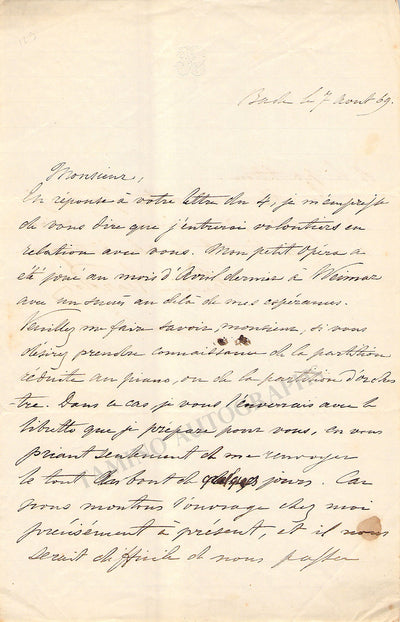 le 7 Aout 69.
Monsieur,
En réponse à votre lettre du 4, je m'empresse
de vous dire que j'entrerai volontiers en
relation avec vous. Mon petit Opéra a
été joué au mois d'Avril dernier à Weimar
avec un succès au delà de mes espérances.
Veuillez me faire savoir, monsieur, si vous
désirez prendre connaissance de la partition
réduite au piano, ou de la partition d'orches
-tre. Dans ce cas, je vous l'enverrais avec le
libretto que je prépare pour vous, en vous
priant seulement de me renvoyer
le tout au bout de quelques jours. Car
nous montons l'ouvrage chez moi
précisément à présent, et il nous
serait difficile de nous passer
TAMINO AUTOGRAPHS